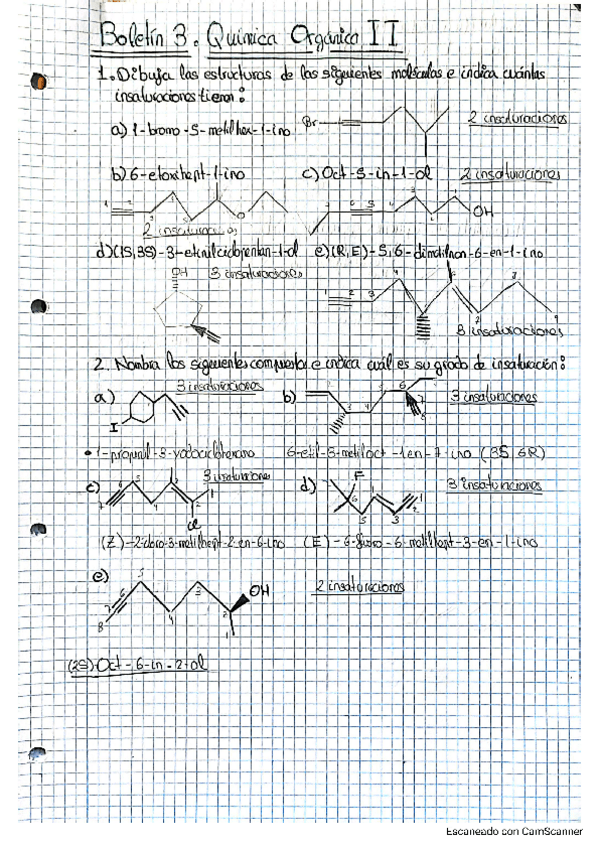 Boletín 3. Química Orgánica II
1. Dibuja las estructuras de las siguientes moléculas e indica cuántas
insaturaciones tienen:
a) 1-bromo-5-metilhex-1-ino
Br
2 insaturaciones
b) 6-etoxihept-1-ino
c) Oct-5-in-1-ol
2 insaturaciones
OH
2 insaturaciones
d) (1S,3S)-3-etinilciclopentan-1-ol
e) (R,E)-5,6-dimetilnon-6-en-1-ino
OH
3 insaturaciones
3 insaturaciones
2. Nombra los siguientes compuestos e indica cuál es su grado de insaturación:
a)
3 insaturaciones
b)
3 insaturaciones
I
6-etil-3-metiloct-1en-7-ino (3S 6R)
c)
3 insaturaciones
d)
F
3 insaturaciones
(Z)-2-cloro-3-metilhept-2-en-6-ino
(E)-6-fluoro-6-metilhept-3-en-1-ino
e)
OH
2 insaturaciones
(2S)-Oct-6-in-2-ol
Escaneado con CamScanner